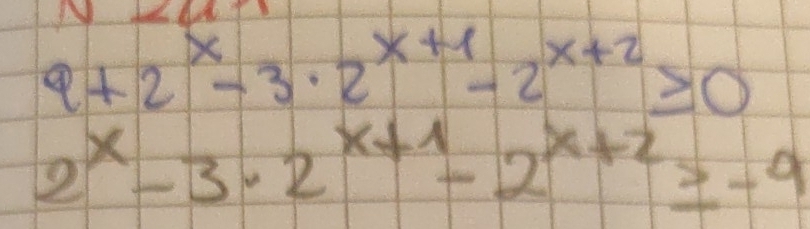 9+2^x-3·2^{x+1}-2^{x+2}≥0
2^x-3·2^{x+1}-2^{x+2}≥-9